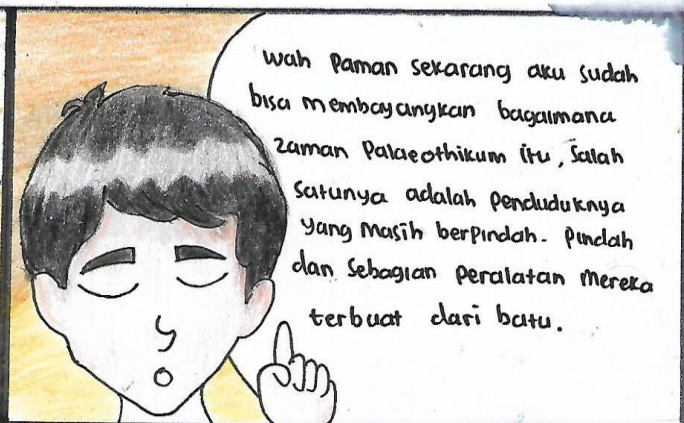 wah Paman sekarang aku sudah
bisa membayangkan bagaimana
zaman Palaeothikum itu, salah
satunya adalah penduduknya
yang masih berpindah- pindah
dan sebagian peralatan mereka
terbuat dari batu.